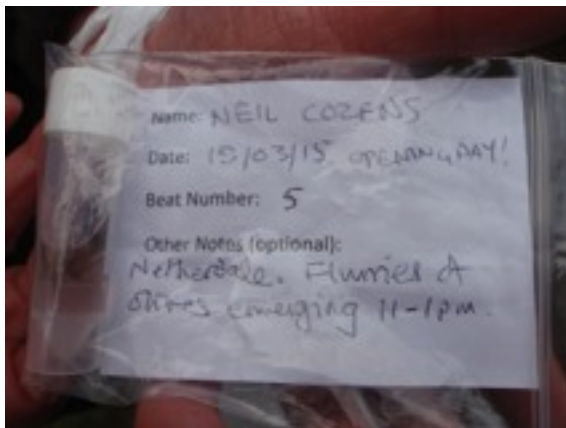 Name: NEIL COZENS
Date: 15/03/15 OPENING DAY!
Beat Number: 5
Other Notes (optional):
Netherdale. Flurries of
olives emerging 11-1pm.